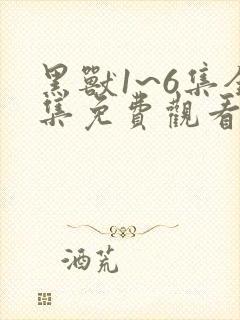 黑獸1~6集全
集免費觀看
酒荒